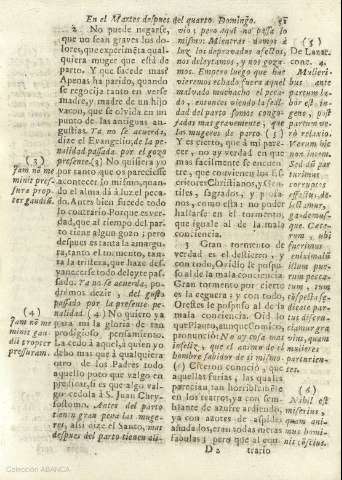 En el Martes despues del quarto Domingo.
2 No puede negarse,
que no sean graves los do-
lores, que experimēta qual-
quiera muger que está de
parto. Y que sucede mas?
Apenas ha parido, quando
se regocija tanto en verse
madre, y madre de un hijo
varon, que se olvida en un
punto de las antiguas an-
gustias. Ya no se acuerda,
dize el Evangelio, de la pe-
nalidad passada, por el gozo
presente. (3) No quisiera yo
por tanto que os pareciesse
acontecer lo mismo, quan-
do el alma dà à luz el peca-
do. Antes bien sucede todo
lo contrario. Porque es ver-
dad, que al tiempo del par-
to tiene algun gozo; pero
despues es tanta la amargu-
ra, tanto el tormento, tan-
ta la tristeza, que haze des-
vanecerse todo deleyte pas-
sado. Ya no se acuerda, po-
drémos dezir, del gusto
passado por la presente pe-
nalidad. (4) No quiero ya
para mi la gloria de tan
prodigioso pensamiento.
La cedo à aquel, à quien yo
debo mas que à qualquiera
otro de los Padres todo
aquello poco que valgo en
predicar, si es que algo val-
go: cedola à S. Juan Chry-
sostomo. Antes del parto
tienen gran pena las muge-
res, assi dize el Santo, mas
despues del parto tienen ali-
(3)
Jam nō me
minit pres-
suræ prop-
ter gaudiū.
(4)
Jam nō me
minit gau-
dii propter
pressuram.
vio; pero aqui no passa lo
mismo: Mientras damos à
luz los depravados afectos,
nos deleytamos, y nos goza-
mos. Empero luego que ha-
viéremos echado fuera aquel
malvado muchacho el peca-
do, entonces viendo la feal-
dad del parto somos congo-
jadas mas gravemente, que
las mugeres de parto. (5)
Y es cierto, que à mi pare-
cer, no ay verdad en que
mas facilmente se encuen-
tre, que convienen los Es-
critores Christianos, y Gen-
tiles, sagrados, y profa-
nos, como esta: no poder
hallarse en el tormento,
que iguale al de la mala
conciencia.
3 Gran tormento de
verdad es el destierro, y
con todo, Ovidio le pospu-
so al de la mala conciencia.
Gran tormento por cierto
es la ceguera; y con todo,
Orestes le pospuso al de la
mala conciencia. Oid lo
que Plauto, aunque Comico,
pronunciò: No ay cosa mas
infeliz, que el animo de un
hombre sabidor de sì mismo.
(6) Ciceron conociò, que
aquellas furias, las quales
parecian tan horriblemēte
en los teatros, yà con sem-
blante de azufre ardiendo,
yà con azotes de aspides
añudados, eran todas meras
fabulas; pero que al con-
D 2 trario
(5)
De Lazar.
conc. 4.
Mulieri-
bus ante
partum la-
bor est in-
gens, post
partum ve-
rò relaxio.
Verum hic
non item.
(6)
Nihil est
miserius,
quam ani-
mus homi-
nis cōscius.